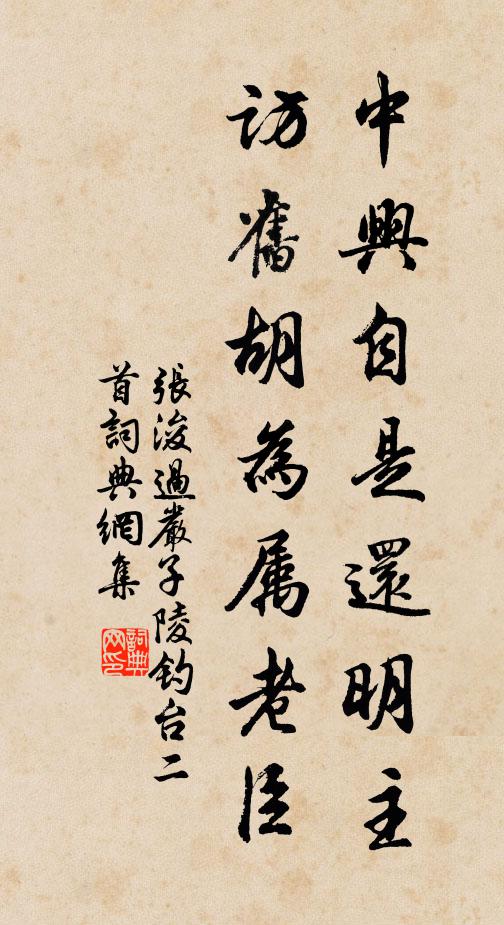 中興自是還明主
訪舊胡為属老臣
張浚過嚴子陵釣台二
首詞典網集
詞典
网印